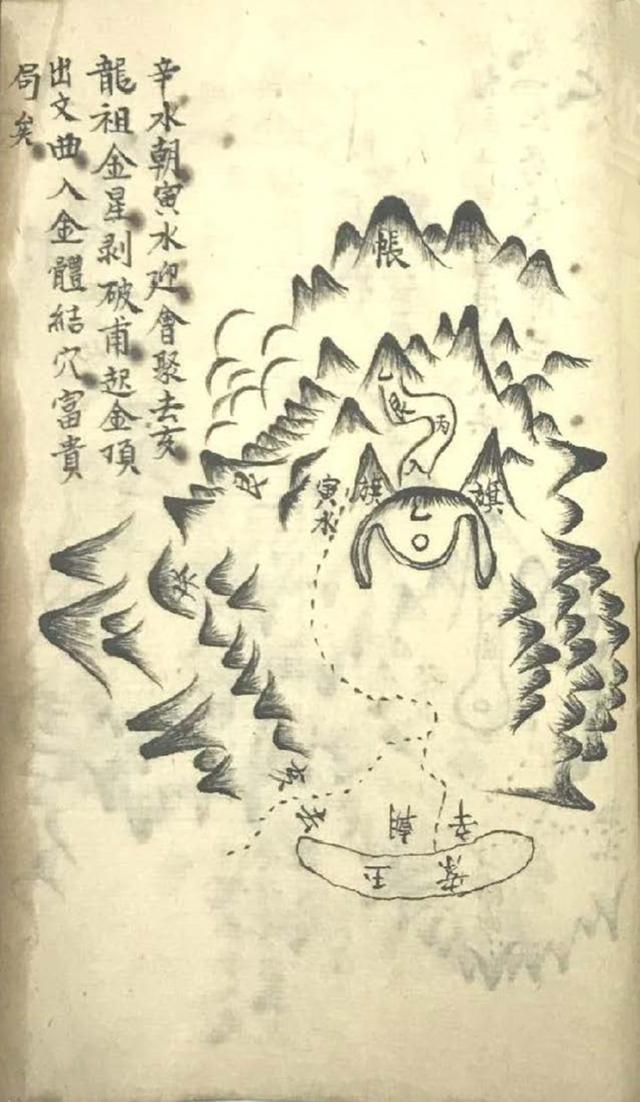 辛水朝寅水迎會聚去亥
龍祖金星剥破甫起金頂
出文曲入金體結穴富貴
局矣
帳
艮
丙
入
旗
旗
寅水
乙
艮
亥
去
朝
辛
玉